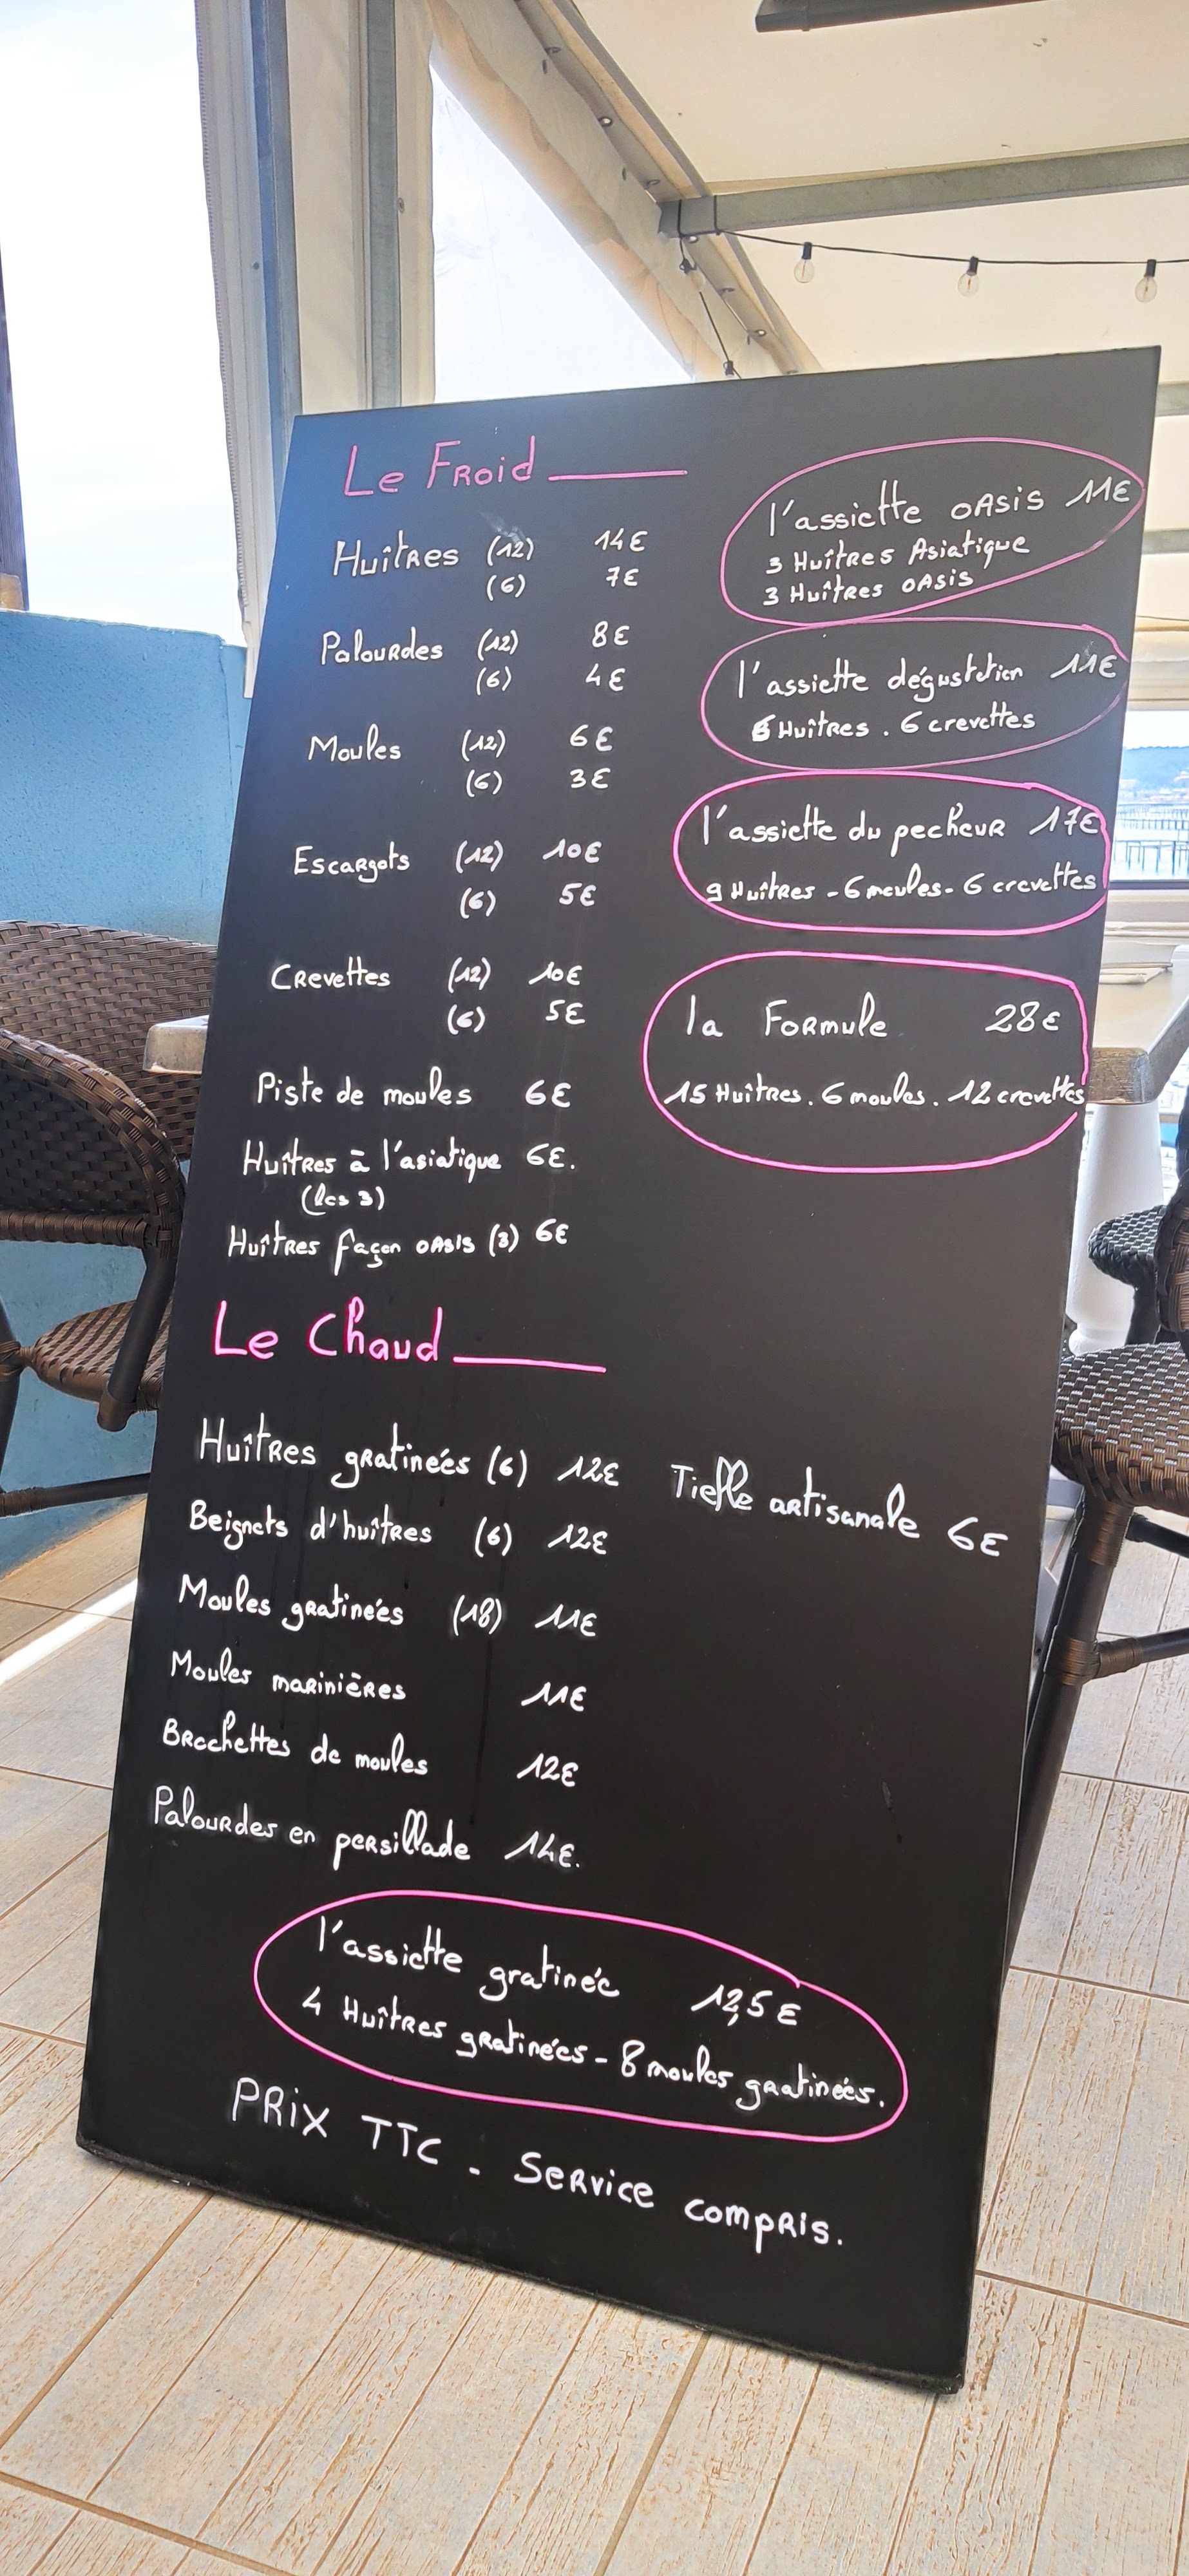 Le Froid
Huîtres (12) 14€
(6) 7€
Palourdes (12) 8€
(6) 4€
Moules (12) 6€
(6) 3€
Escargots (12) 10€
(6) 5€
Crevettes (12) 10€
(6) 5€
Piste de moules 6€
Huîtres à l'asiatique 6€.
(les 3)
Huîtres façon OASIS (3) 6€
l'assiette OASIS 11€
3 Huîtres Asiatique
3 Huîtres OASIS
l'assiette dégustation 11€
6 Huîtres . 6 crevettes
l'assiette du pecheur 17€
9 Huîtres - 6 moules - 6 crevettes
la Formule 28€
15 Huîtres . 6 moules . 12 crevettes
Le Chaud
Huîtres gratinées (6) 12€
Beignets d'huîtres (6) 12€
Moules gratinées (18) 11€
Moules marinières 11€
Brochettes de moules 12€
Palourdes en persillade 14€.
Tielle artisanale 6€
l'assiette gratinée 12,5€
4 Huîtres gratinées - 8 moules gratinées.
PRIX TTC - Service compris.